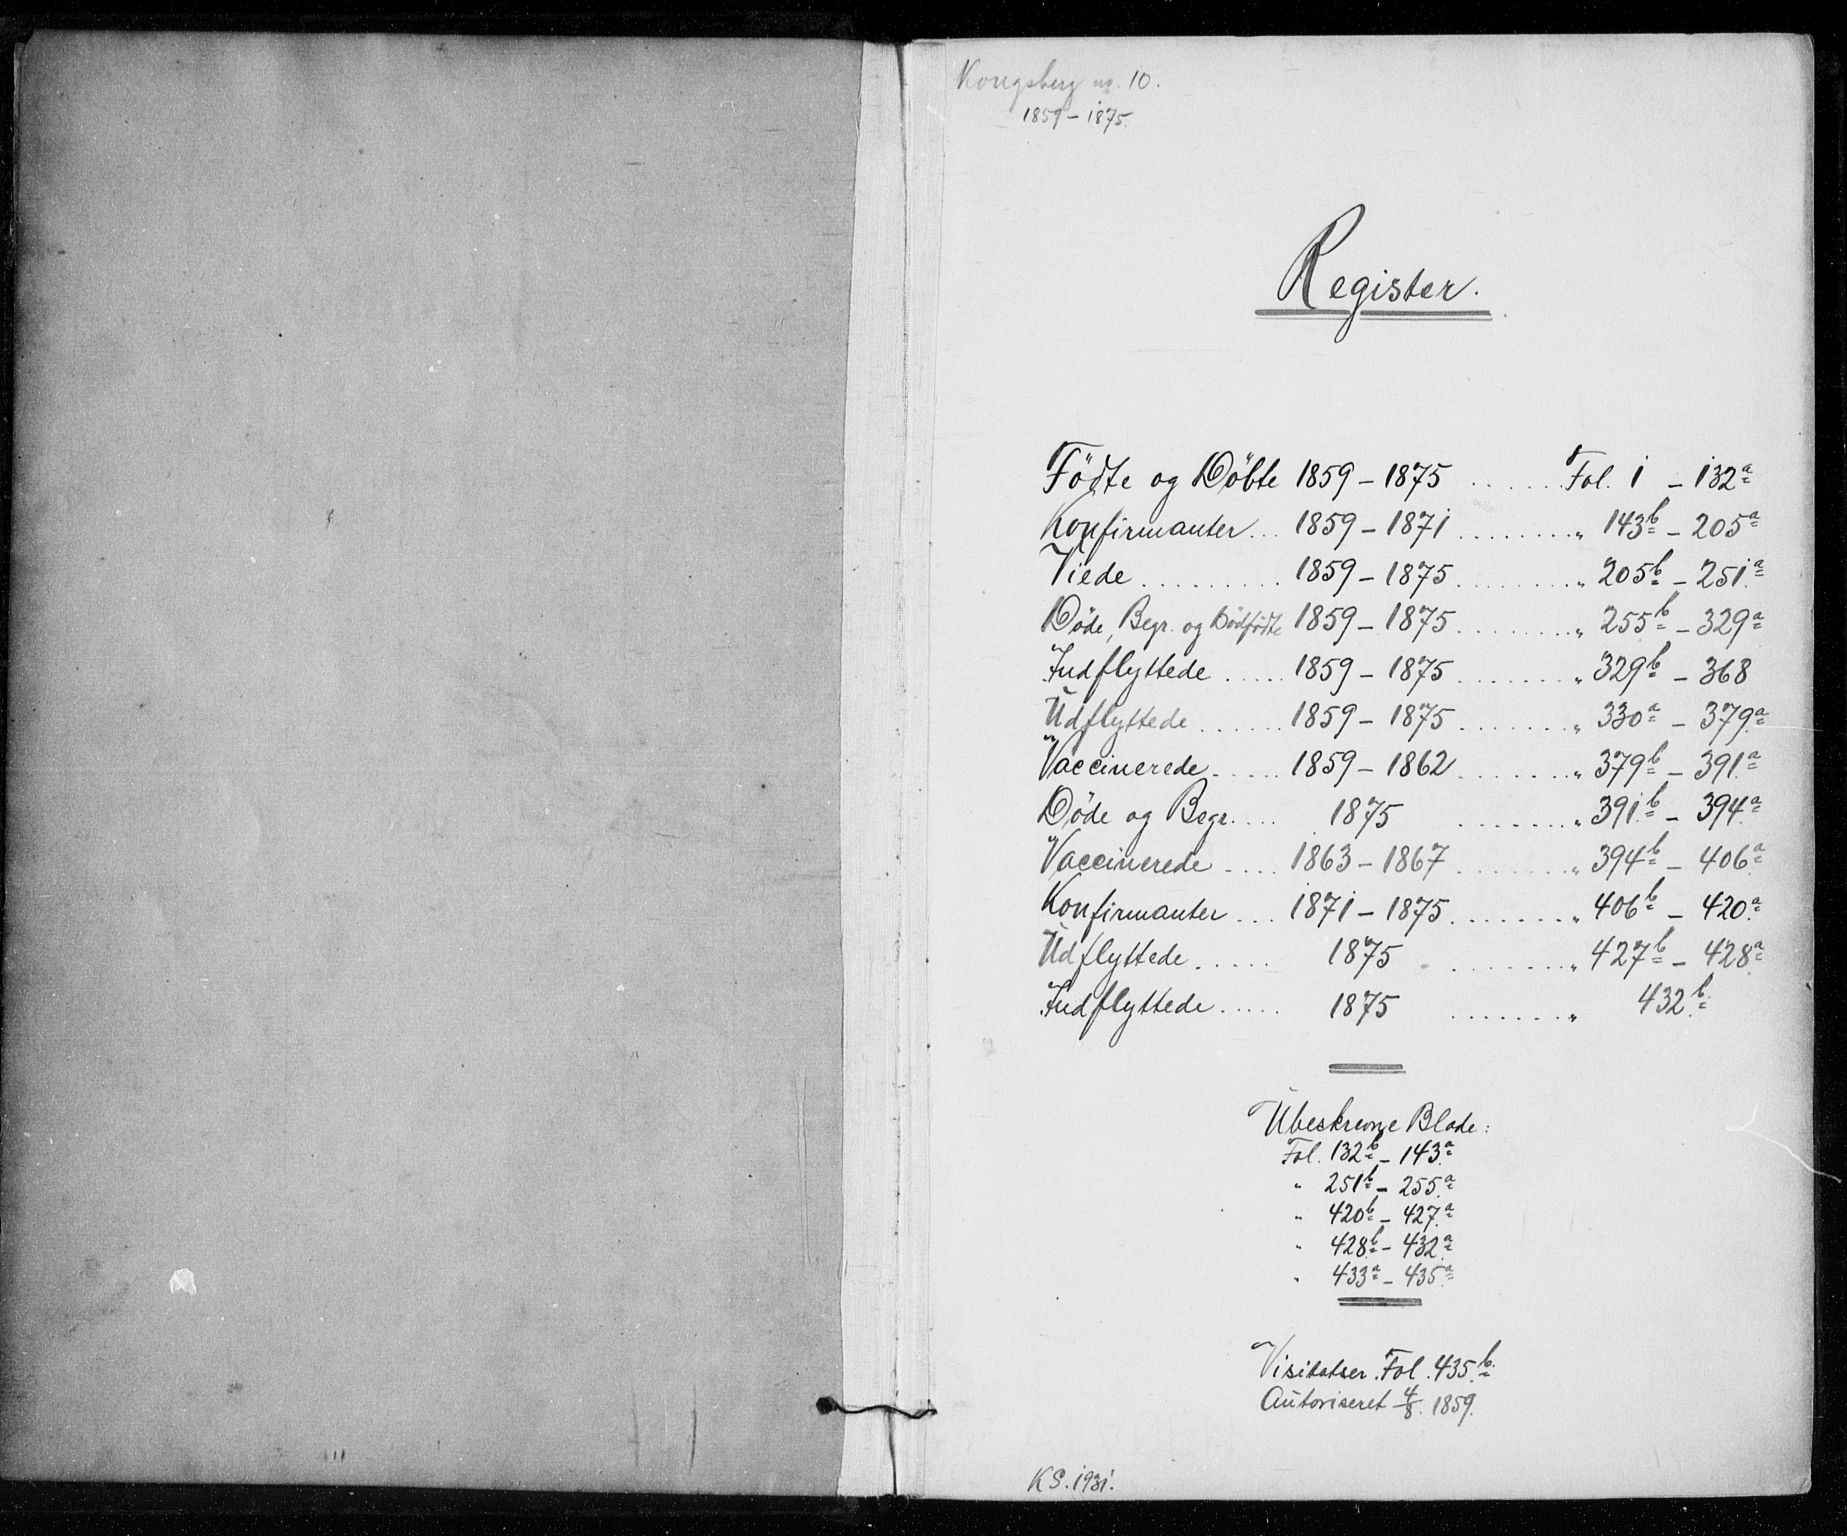 Kongsberg nr. 10.
1859 – 1875.
Register.
Födte og Döbte 1859 – 1875 ....... Fol. 1 – 132a
Konfirmanter... 1859 – 1871 ......... " 143b – 205a
Viede .......... 1859 – 1875 ......... " 205b – 251a
Døde, Begr. og Dødfødte 1859 – 1875 ......... " 255b – 329a
Indflyttede ..... 1859 – 1875 ......... " 329b – 368
Udflyttede ...... 1859 – 1875 ......... " 330a – 379a
Vaccinerede ..... 1859 – 1862 ......... " 379b – 391a
Døde og Begr. .... 1875 ........ " 391b – 394a
Vaccinerede .... 1863 – 1867 ......... " 394b – 406a
Konfirmanter ... 1871 – 1875 ......... " 406b – 420a
Udflyttede ...... 1875 ........ " 427b – 428a
Indflyttede ..... 1875 ........ " 432b
Ubeskrevne Blade:
Fol. 132b – 143a
" 251b – 255a
" 420b – 427a
" 428b – 432a
" 433a – 435a
Visitatser. Fol. 435b
Autoriseret 4/8. 1859.
KS. 1931.